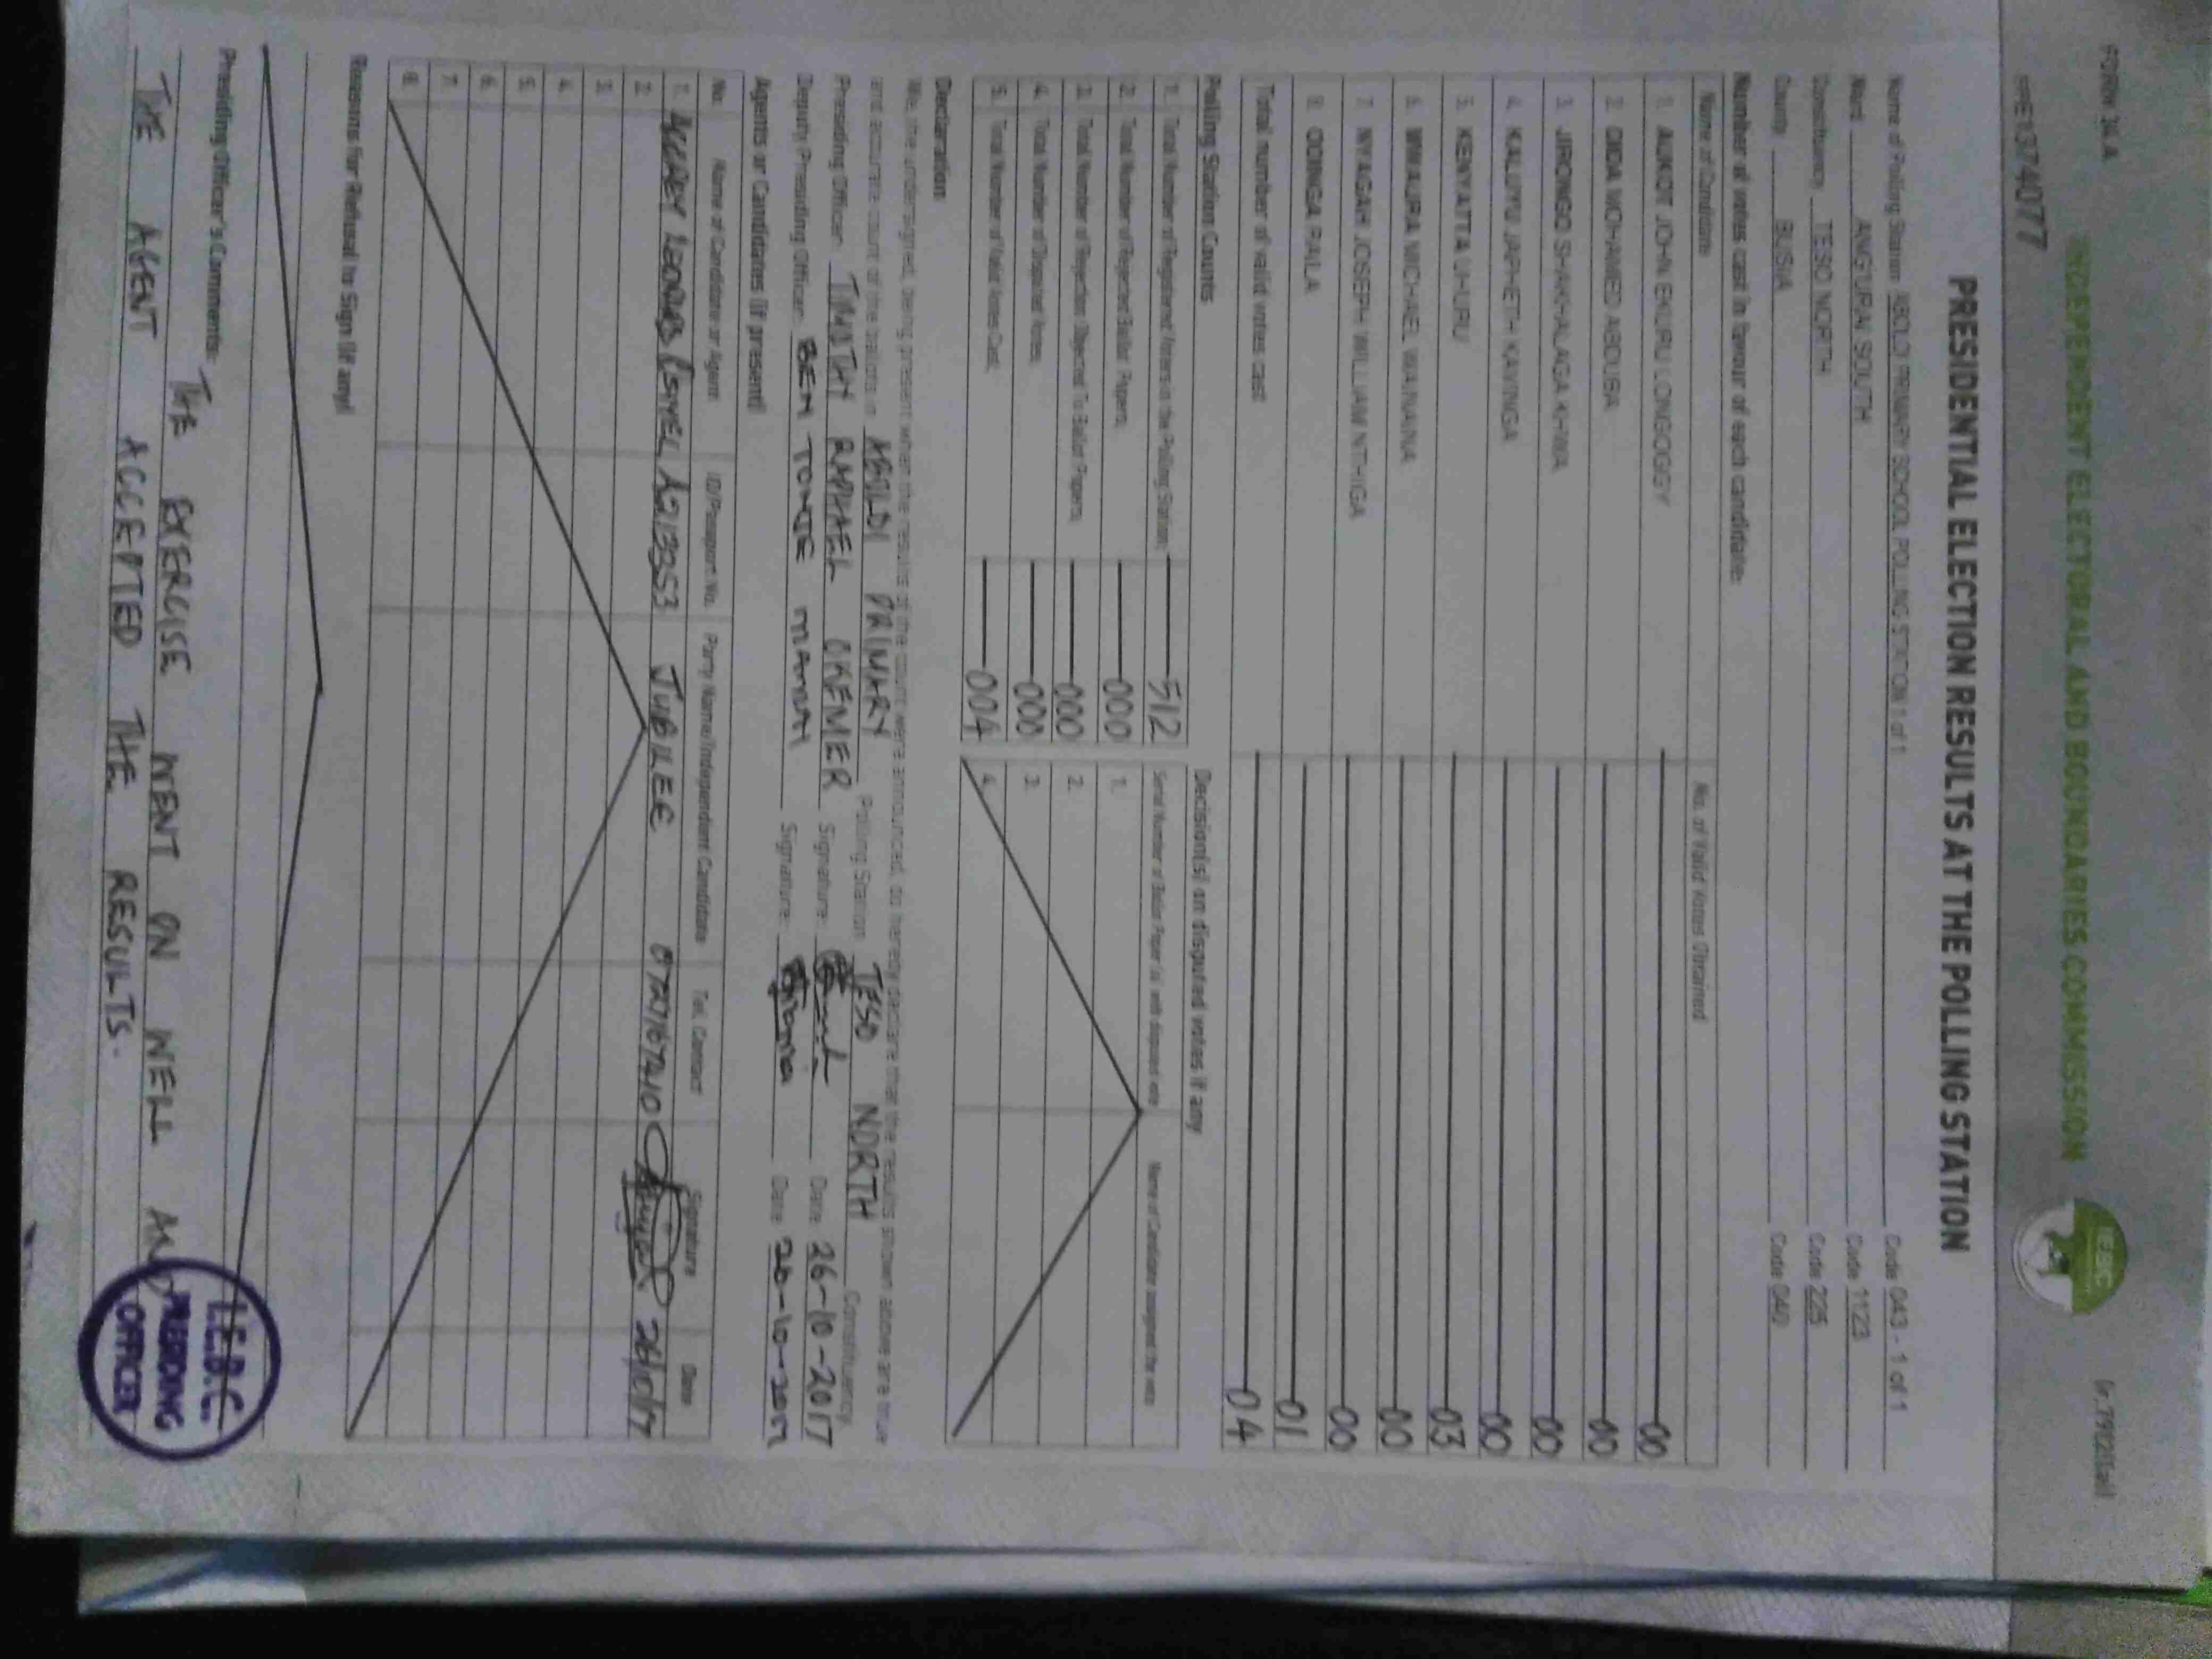 FORM 34 A
INDEPENDENT ELECTORAL AND BOUNDARIES COMMISSION
IEBC
PRESIDENTIAL ELECTION RESULTS AT THE POLLING STATION
Name of Polling Station PRIMARY SCHOOL POLLING STATION 1 of 1 Code 043 - 1 of 1
Ward ANGURAI SOUTH Code 1123
Constituency TESO NORTH Code 225
County BUSIA Code 040
Number of votes cast in favour of each candidate:
Name of Candidate No. of Valid Votes Obtained
1. AUKOT JOHN EKURU LONGOGGY 00
2. DIDA MOHAMED ABDUBA 00
3. JIRONGO SHAKHALAGA KHWA 00
4. KALUYU JAPHETH KAVINGA 00
5. KENYATTA UHURU 03
6. MWAURA MICHAEL WAINAINA 00
7. NYAGAH JOSEPH WILLIAM NTHIGA 00
8. ODINGA RAILA 01
Total number of valid votes cast 04
Polling Station Counts
1. Total Number of Registered Voters in the Polling Station: 512
2. Total Number of Rejected Ballot Papers: 000
3. Total Number of Rejection Objected To Ballot Papers: 000
4. Total Number of Disputed Votes: 000
5. Total Number of Valid Votes Cast: 004
Decision(s) on disputed votes if any
Serial Number of Ballot Paper(s) with disputed vote Name of Candidate assigned the vote
1.
2.
3.
4.
Declaration
We, the undersigned, being present when the results of the count were announced, do hereby declare that the results shown above are true
and accurate count of the ballots in ABOLOI PRIMARY Polling Station TESO NORTH Constituency.
Presiding Officer: TIMOTHY RAPHAEL OKEMER Signature: Date: 26-10-2017
Deputy Presiding Officer: BEN Signature: Date: 26-10-2017
Agents or Candidates (if present)
No. Name of Candidate or Agent ID/Passport No. Party Name/Independent Candidate Tel. Contact Signature Date
1. JUBILEE 26/10/17
2.
3.
4.
5.
6.
7.
8.
Reasons for Refusal to Sign (if any)
Presiding Officer's Comments: THE EXERCISE WENT ON WELL AND
THE AGENT ACCEPTED THE RESULTS.
I.E.B.C.
PRESIDING
OFFICER